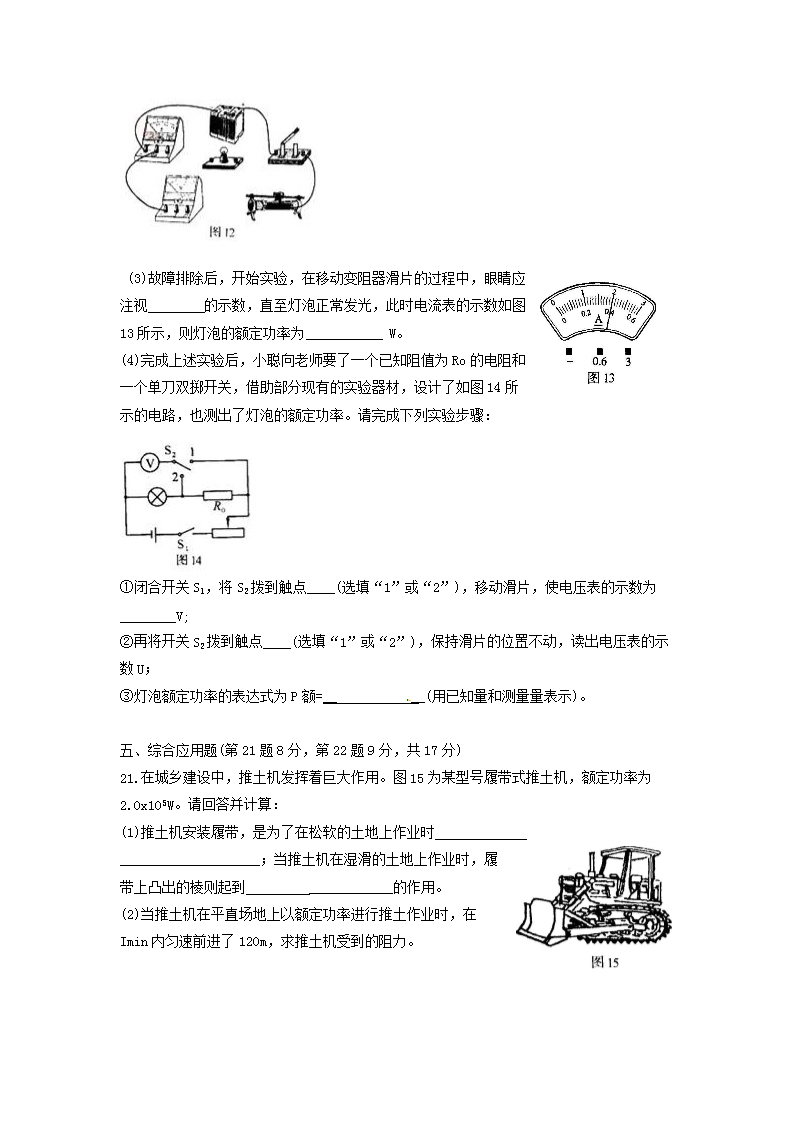 图12
(3)故障排除后，开始实验，在移动变阻器滑片的过程中，眼睛应
注视________的示数，直至灯泡正常发光，此时电流表的示数如图
13所示，则灯泡的额定功率为___________ W。
0 1 2 3
0 0.2 0.4 0.6
A
− 0.6 3
图13
(4)完成上述实验后，小聪向老师要了一个已知阻值为Ro的电阻和
一个单刀双掷开关，借助部分现有的实验器材，设计了如图14所
示的电路，也测出了灯泡的额定功率。请完成下列实验步骤：
V S₂ 1
2
R₀
S₁
图14
①闭合开关S₁，将S₂拨到触点____(选填“1”或“2”)，移动滑片，使电压表的示数为
________V;
②再将开关S₂拨到触点____(选填“1”或“2”)，保持滑片的位置不动，读出电压表的示
数U；
③灯泡额定功率的表达式为P额=______________(用已知量和测量量表示)。
五、综合应用题(第21题8分，第22题9分，共17分)
21.在城乡建设中，推土机发挥着巨大作用。图15为某型号履带式推土机，额定功率为
2.0x10⁵W。请回答并计算：
(1)推土机安装履带，是为了在松软的土地上作业时_____________
____________________；当推土机在湿滑的土地上作业时，履
带上凸出的棱则起到_____________________的作用。
(2)当推土机在平直场地上以额定功率进行推土作业时，在
Imin内匀速前进了120m，求推土机受到的阻力。
图15